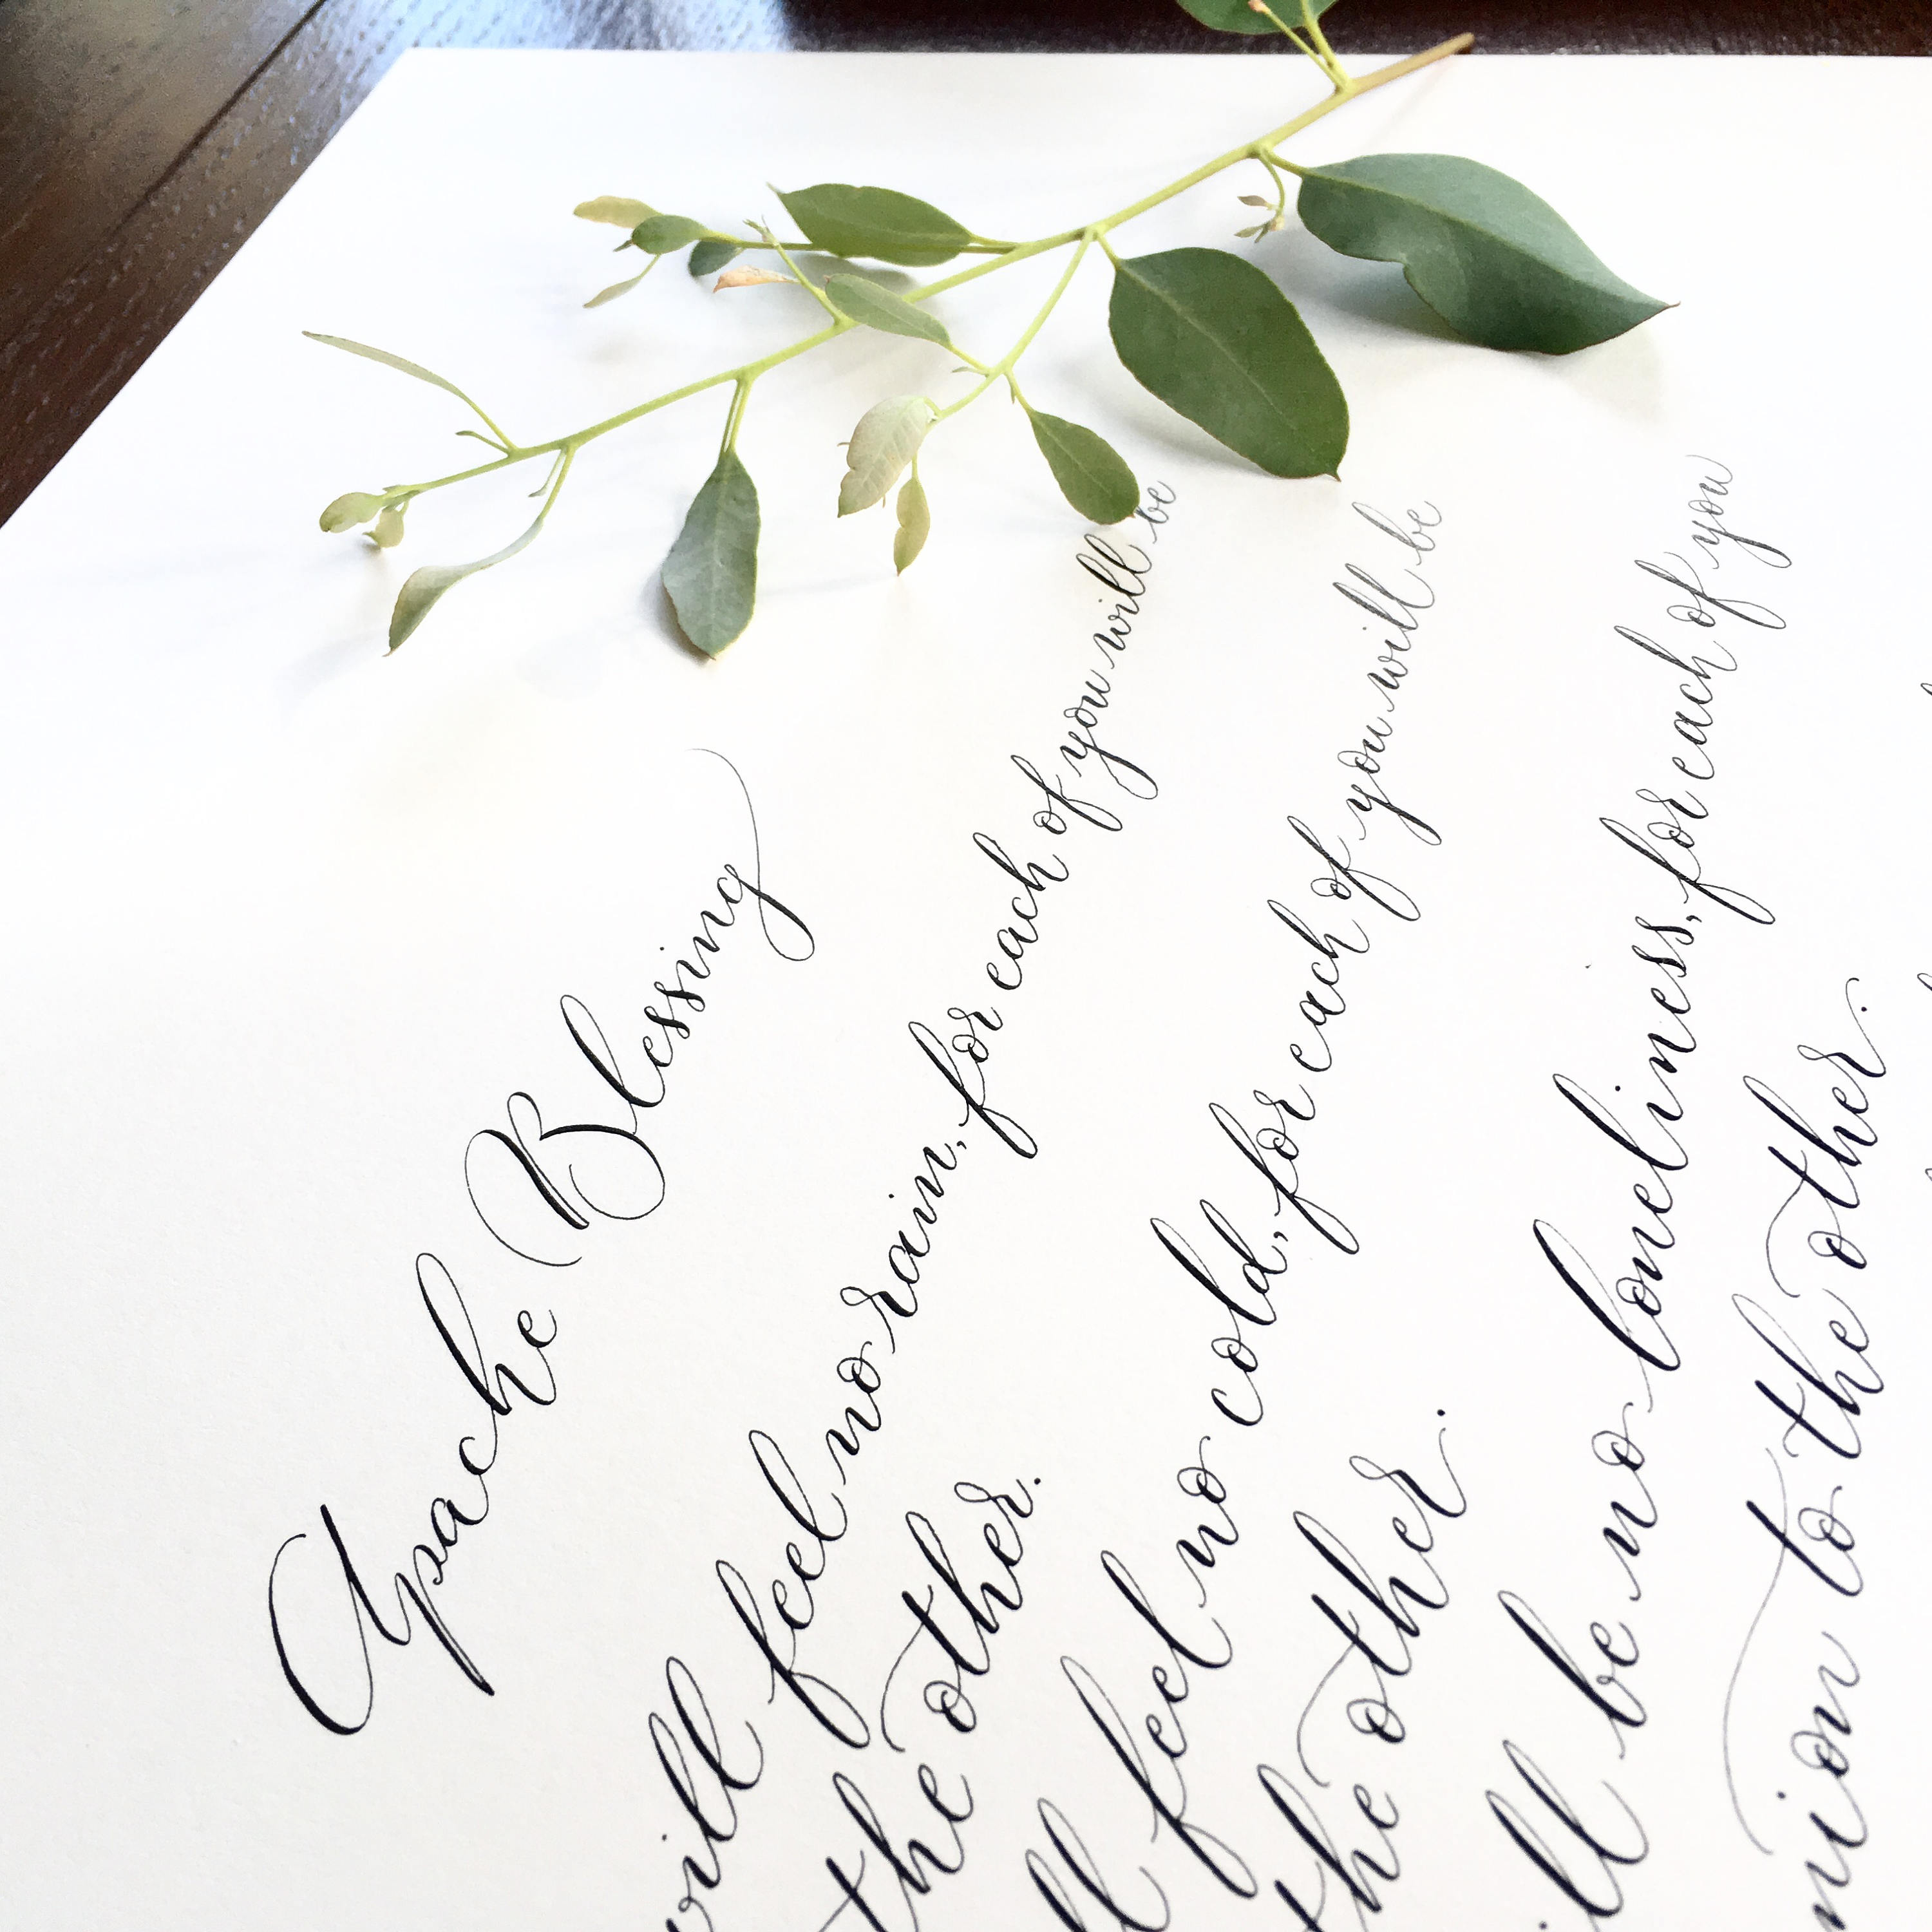 Apache Blessing
will feel no rain, for each of you will be
the other.
feel no cold, for each of you will be
the other.
be no loneliness, for each of you
to the other.